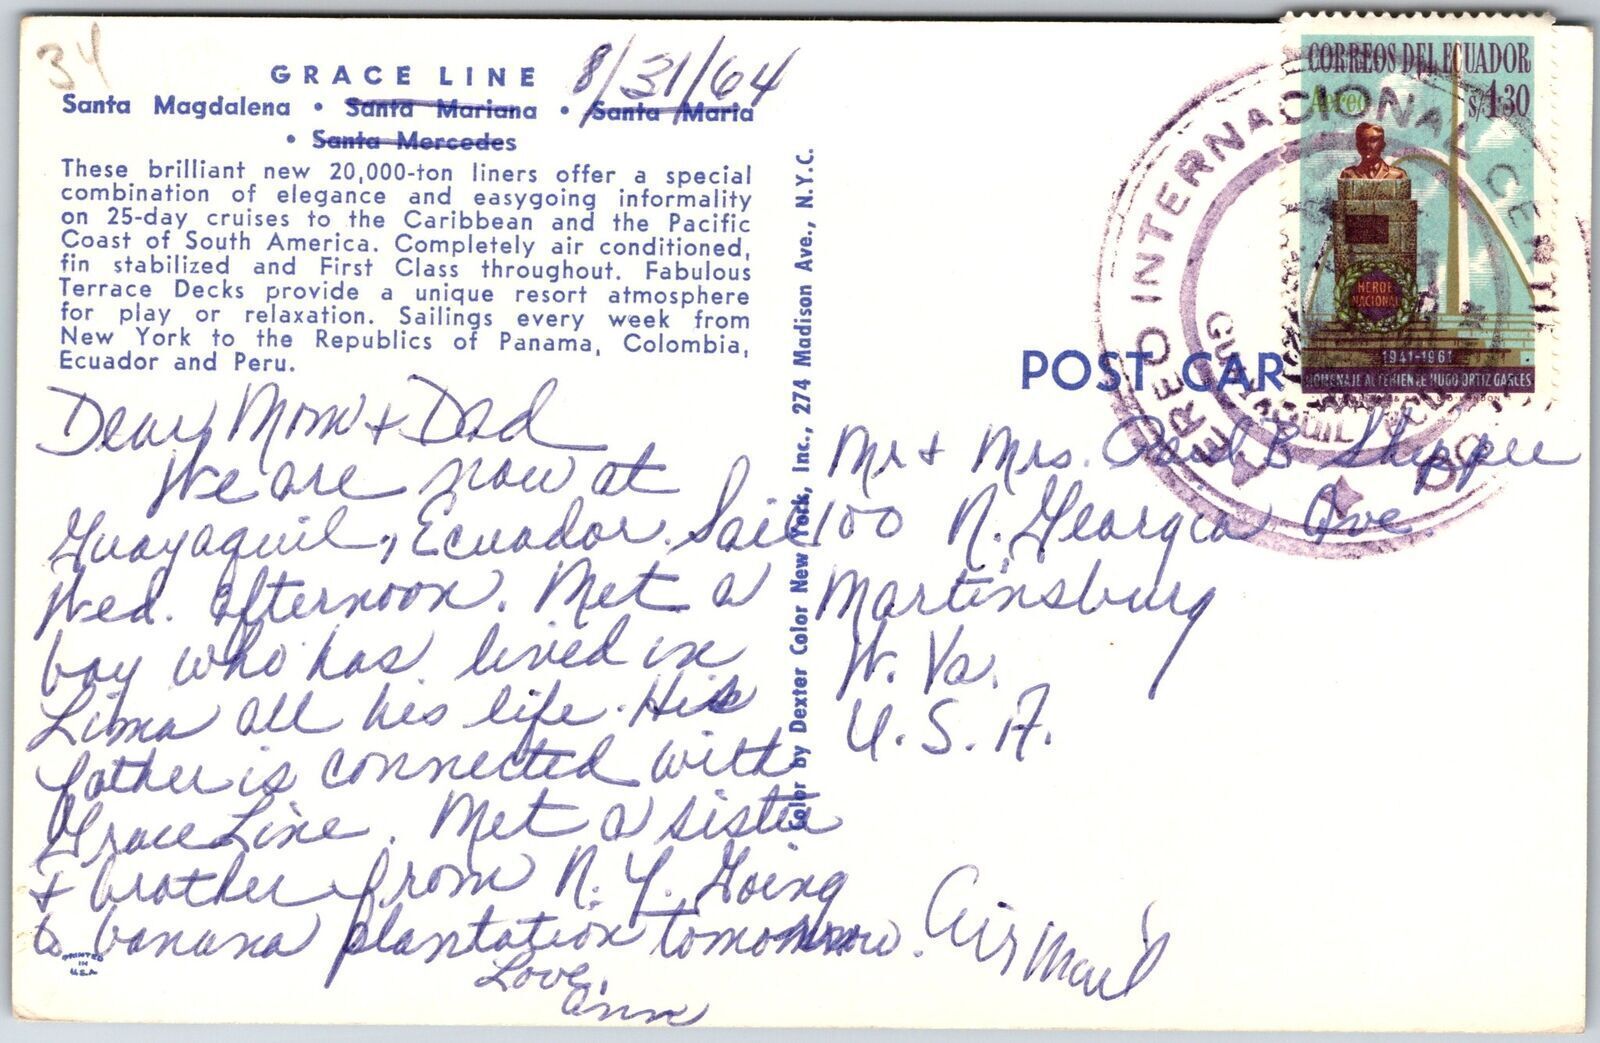 34
GRACE LINE 8/31/64
Santa Magdalena • Santa Mariana • Santa Maria
• Santa Mercedes
These brilliant new 20,000-ton liners offer a special
combination of elegance and easygoing informality
on 25-day cruises to the Caribbean and the Pacific
Coast of South America. Completely air conditioned,
fin stabilized and First Class throughout. Fabulous
Terrace Decks provide a unique resort atmosphere
for play or relaxation. Sailings every week from
New York to the Republics of Panama, Colombia,
Ecuador and Peru.
Dear Mom + Dad
We are now at
Guayaquil, Ecuador. Sail
Wed. afternoon. Met a
boy who has lived in
Lima all his life. His
father is connected with
Grace Line. Met a sister
+ brother from N.Y. Going
to banana plantation tomorrow.
Love,
Ann
PRINTED
IN
U.S.A.
Color by Dexter Color New York, Inc., 274 Madison Ave., N.Y.C.
POST CAR
CORREOS DEL ECUADOR
Aereo S/.1.30
HEROE
NACIONAL
1941-1961
HOMENAJE AL TENIENTE HUGO ORTIZ GARCES
AEREO INTERNACIONAL
GUAYAQUIL
Mr + Mrs. B Shipper
100 N. Georgia Ave
Martinsburg
W. Va.
U.S.A.
Air Mail